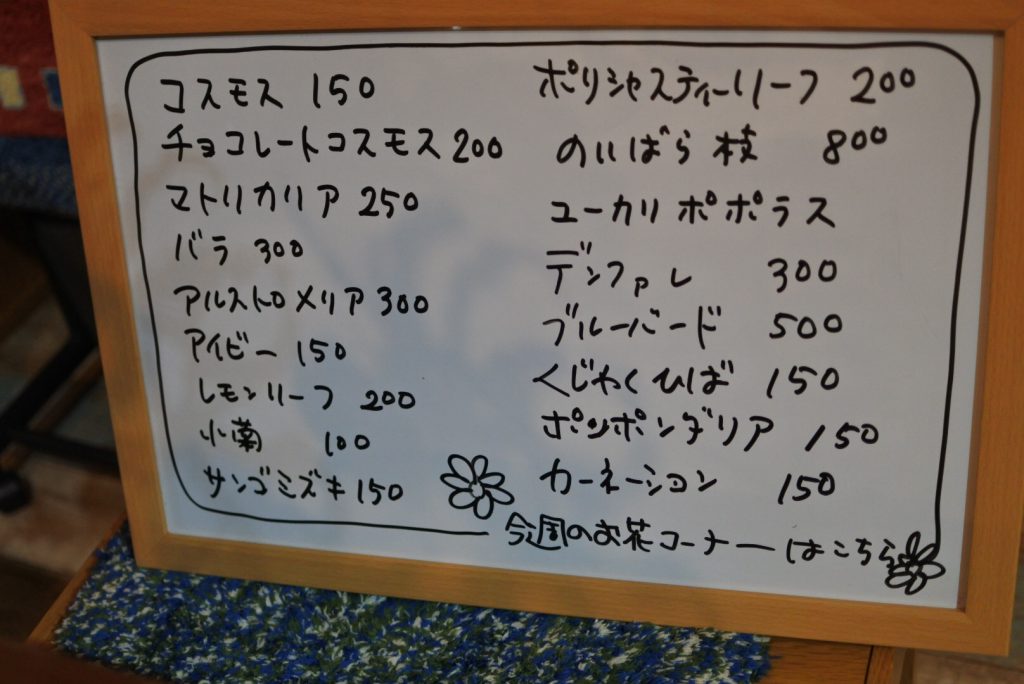 コスモス 150
チョコレートコスモス 200
マトリカリア 250
バラ 300
アルストロメリア 300
アイビー 150
レモンリーフ 200
小菊 100
サンゴミズキ 150
ポリシャスティーリーフ 200
のいばら 枝 800
ユーカリ ポポラス
デンファレ 300
ブルーバード 500
くじゃくひば 150
ポンポンダリア 150
カーネーション 150
今週のお花コーナーはこちら